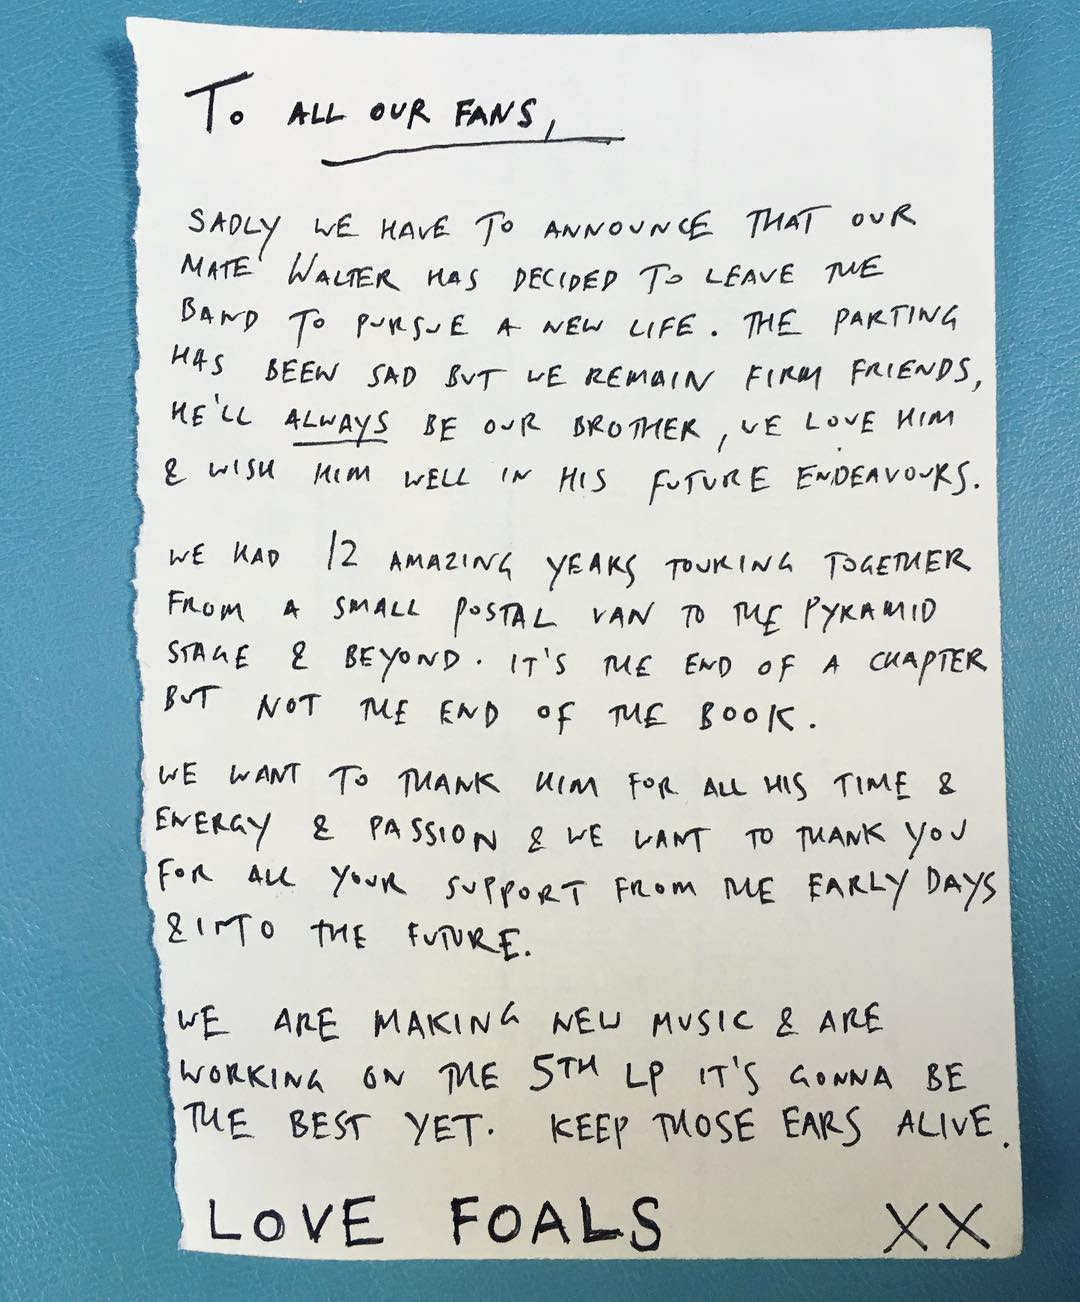 To ALL OUR FANS,
SADLY WE HAVE TO ANNOUNCE THAT OUR
MATE WALTER HAS DECIDED TO LEAVE THE
BAND TO PURSUE A NEW LIFE. THE PARTING
HAS BEEN SAD BUT WE REMAIN FIRM FRIENDS,
HE'LL ALWAYS BE OUR BROTHER, WE LOVE HIM
& WISH HIM WELL IN HIS FUTURE ENDEAVOURS.
WE HAD 12 AMAZING YEARS TOURING TOGETHER
FROM A SMALL POSTAL VAN TO THE PYRAMID
STAGE & BEYOND. IT'S THE END OF A CHAPTER
BUT NOT THE END OF THE BOOK.
WE WANT TO THANK HIM FOR ALL HIS TIME &
ENERGY & PASSION & WE WANT TO THANK YOU
FOR ALL YOUR SUPPORT FROM THE EARLY DAYS
& INTO THE FUTURE.
WE ARE MAKING NEW MUSIC & ARE
WORKING ON THE 5TH LP IT'S GONNA BE
THE BEST YET. KEEP THOSE EARS ALIVE.
LOVE FOALS XX